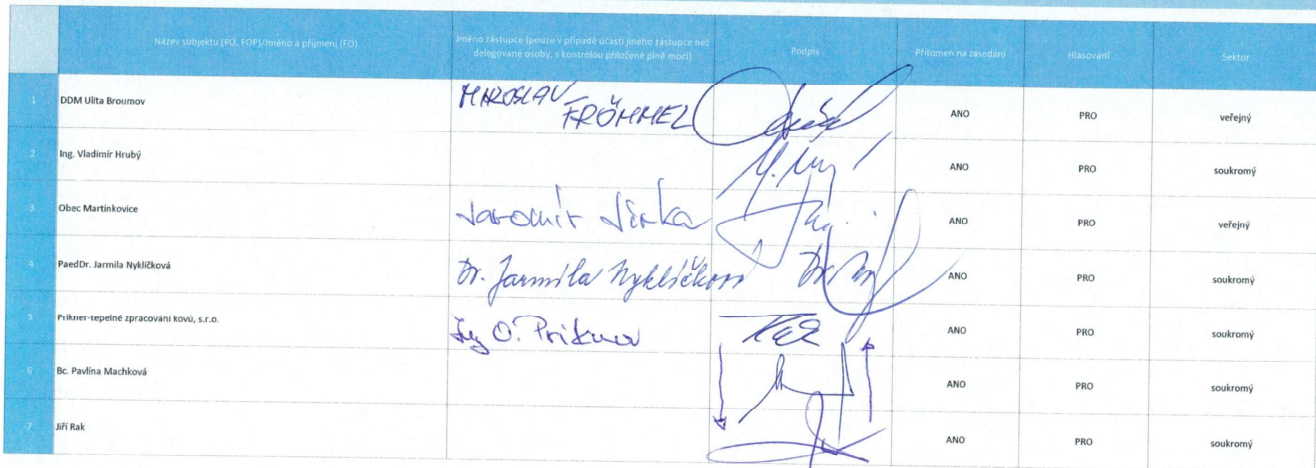 Název subjektu (PO, FOP)/Jméno a příjmení (FO)
Jméno zástupce (pouze v případě účasti jiného zástupce než
delegované osoby, s kontrolou přiložené plné moci)
Podpis
Přítomen na zasedání
Hlasování
Sektor
1 DDM Ulita Broumov MIROSLAV FRÖMMEL ANO PRO veřejný
2 Ing. Vladimír Hrubý ANO PRO soukromý
3 Obec Martínkovice Jaromír Jirka ANO PRO veřejný
4 PaedDr. Jarmila Nyklíčková Dr. Jarmila Nyklíčková ANO PRO soukromý
5 Prikner-tepelné zpracování kovů, s.r.o. Ing O. Prikner ANO PRO soukromý
6 Bc. Pavlína Machková ANO PRO soukromý
7 Jiří Rak ANO PRO soukromý